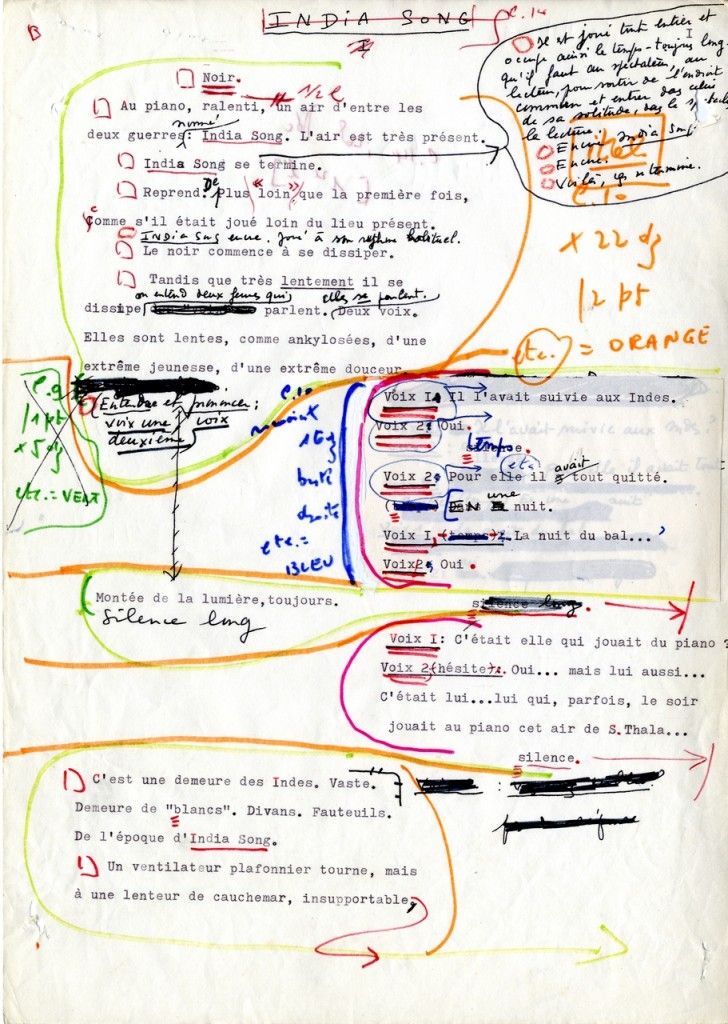 B
INDIA SONG
I
c.10
Il est joué tout entier et
occupe ainsi le temps - toujours long -
qu'il faut au spectateur, au
lecteur, pour sortir de l'endroit
commun et entrer dans celui
de sa solitude, dans le
la lecture.
Encore India Song
Encore.
Voilà, ça se termine.
I
Noir.
Au piano, ralenti, un air d'entre les
nommé
deux guerres: India Song. L'air est très présent.
India Song se termine.
Reprend. De Plus "loin" que la première fois,
comme s'il était joué loin du lieu présent.
India Song encore. Joué à son rythme habituel.
Le noir commence à se dissiper.
Tandis que très lentement il se
on entend deux femmes qui elles se parlent.
dissipe parlent. Deux voix.
Elles sont lentes, comme ankylosées, d'une
extrême jeunesse, d'une extrême douceur
x 22 dz
12 pt
etc. = ORANGE
c.9
x 5 dz
etc. = VERT
voix une
deuxième voix
c.10
droite
etc. =
BLEU
Voix I. Il l'avait suivie aux Indes.
Voix 2: Oui.
silence.
temps
etc. avait
Voix 2: Pour elle il a tout quitté.
une
EN nuit.
Voix I (temps): La nuit du bal...
Voix 2: Oui.
Montée de la lumière, toujours.
silence long.
Silence long
Voix I: C'était elle qui jouait du piano ?
Voix 2 (hésite): Oui... mais lui aussi...
C'était lui...lui qui, parfois, le soir
jouait au piano cet air de S.Thala...
silence.
C'est une demeure des Indes. Vaste.
Demeure de "blancs". Divans. Fauteuils.
De l'époque d'India Song.
Un ventilateur plafonnier tourne, mais
à une lenteur de cauchemar, insupportable,